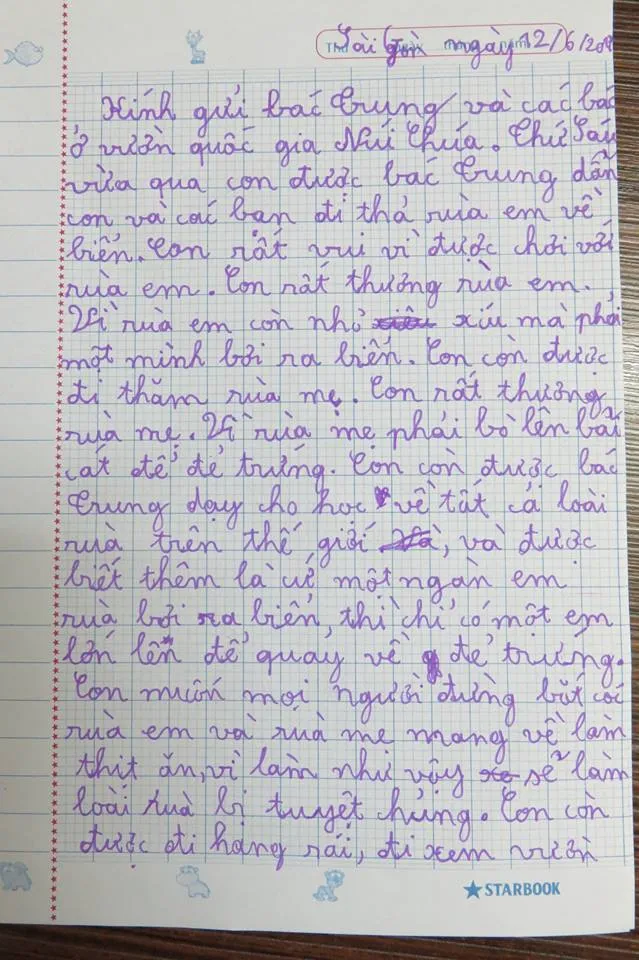 Sài Gòn ngày 12/6/20
Kính gửi bác Trung và các bác
ở vườn quốc gia Núi Chúa. Thứ Sáu
vừa qua con được bác Trung dẫn
con và các bạn đi thả rùa em về
biển. Con rất vui vì được chơi với
rùa em. Con rất thương rùa em.
Vì rùa em còn nhỏ xíu mà phải
một mình bơi ra biển. Con còn được
đi thăm rùa mẹ. Con rất thương
rùa mẹ. Vì rùa mẹ phải bò lên bãi
cát để đẻ trứng. Con còn được bác
Trung dạy cho học về tất cả loài
rùa trên thế giới, và được
biết thêm là cứ một ngàn em
rùa bơi ra biển, thì chỉ có một em
lớn lên để quay về đẻ trứng.
Con muốn mọi người đừng bắt các
rùa em và rùa mẹ mang về làm
thịt ăn, vì làm như vậy sẽ làm
loài rùa bị tuyệt chủng. Con còn
được đi hang rái, đi xem vườn
STARBOOK